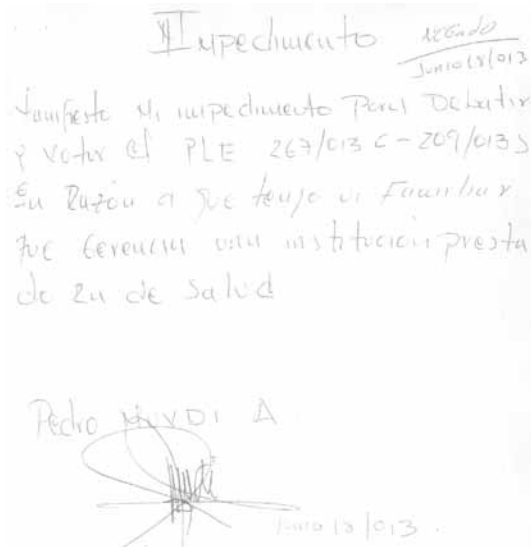 Impedimento
Negado
Junio 18/013
Manifiesto Mi impedimento Para Debatir
y Votar el PLE 267/013 C - 209/013 S
En Razón a que tengo un Familiar
que Gerencia una institución presta
do Ra de Salud
Pedro Muvdi A
Junio 18/013.